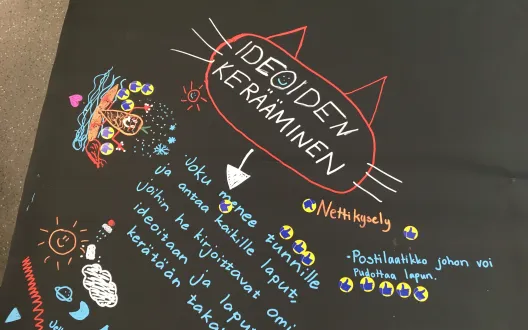 IDEOIDEN
KERÄÄMINEN
Joku menee tunnille
ja antaa kaikille laput,
joihin he kirjoittavat omi
ideoitaan ja lapu
kerätään taka
Nettikysely
-Postilaatikko johon voi
Pudottaa lapun.